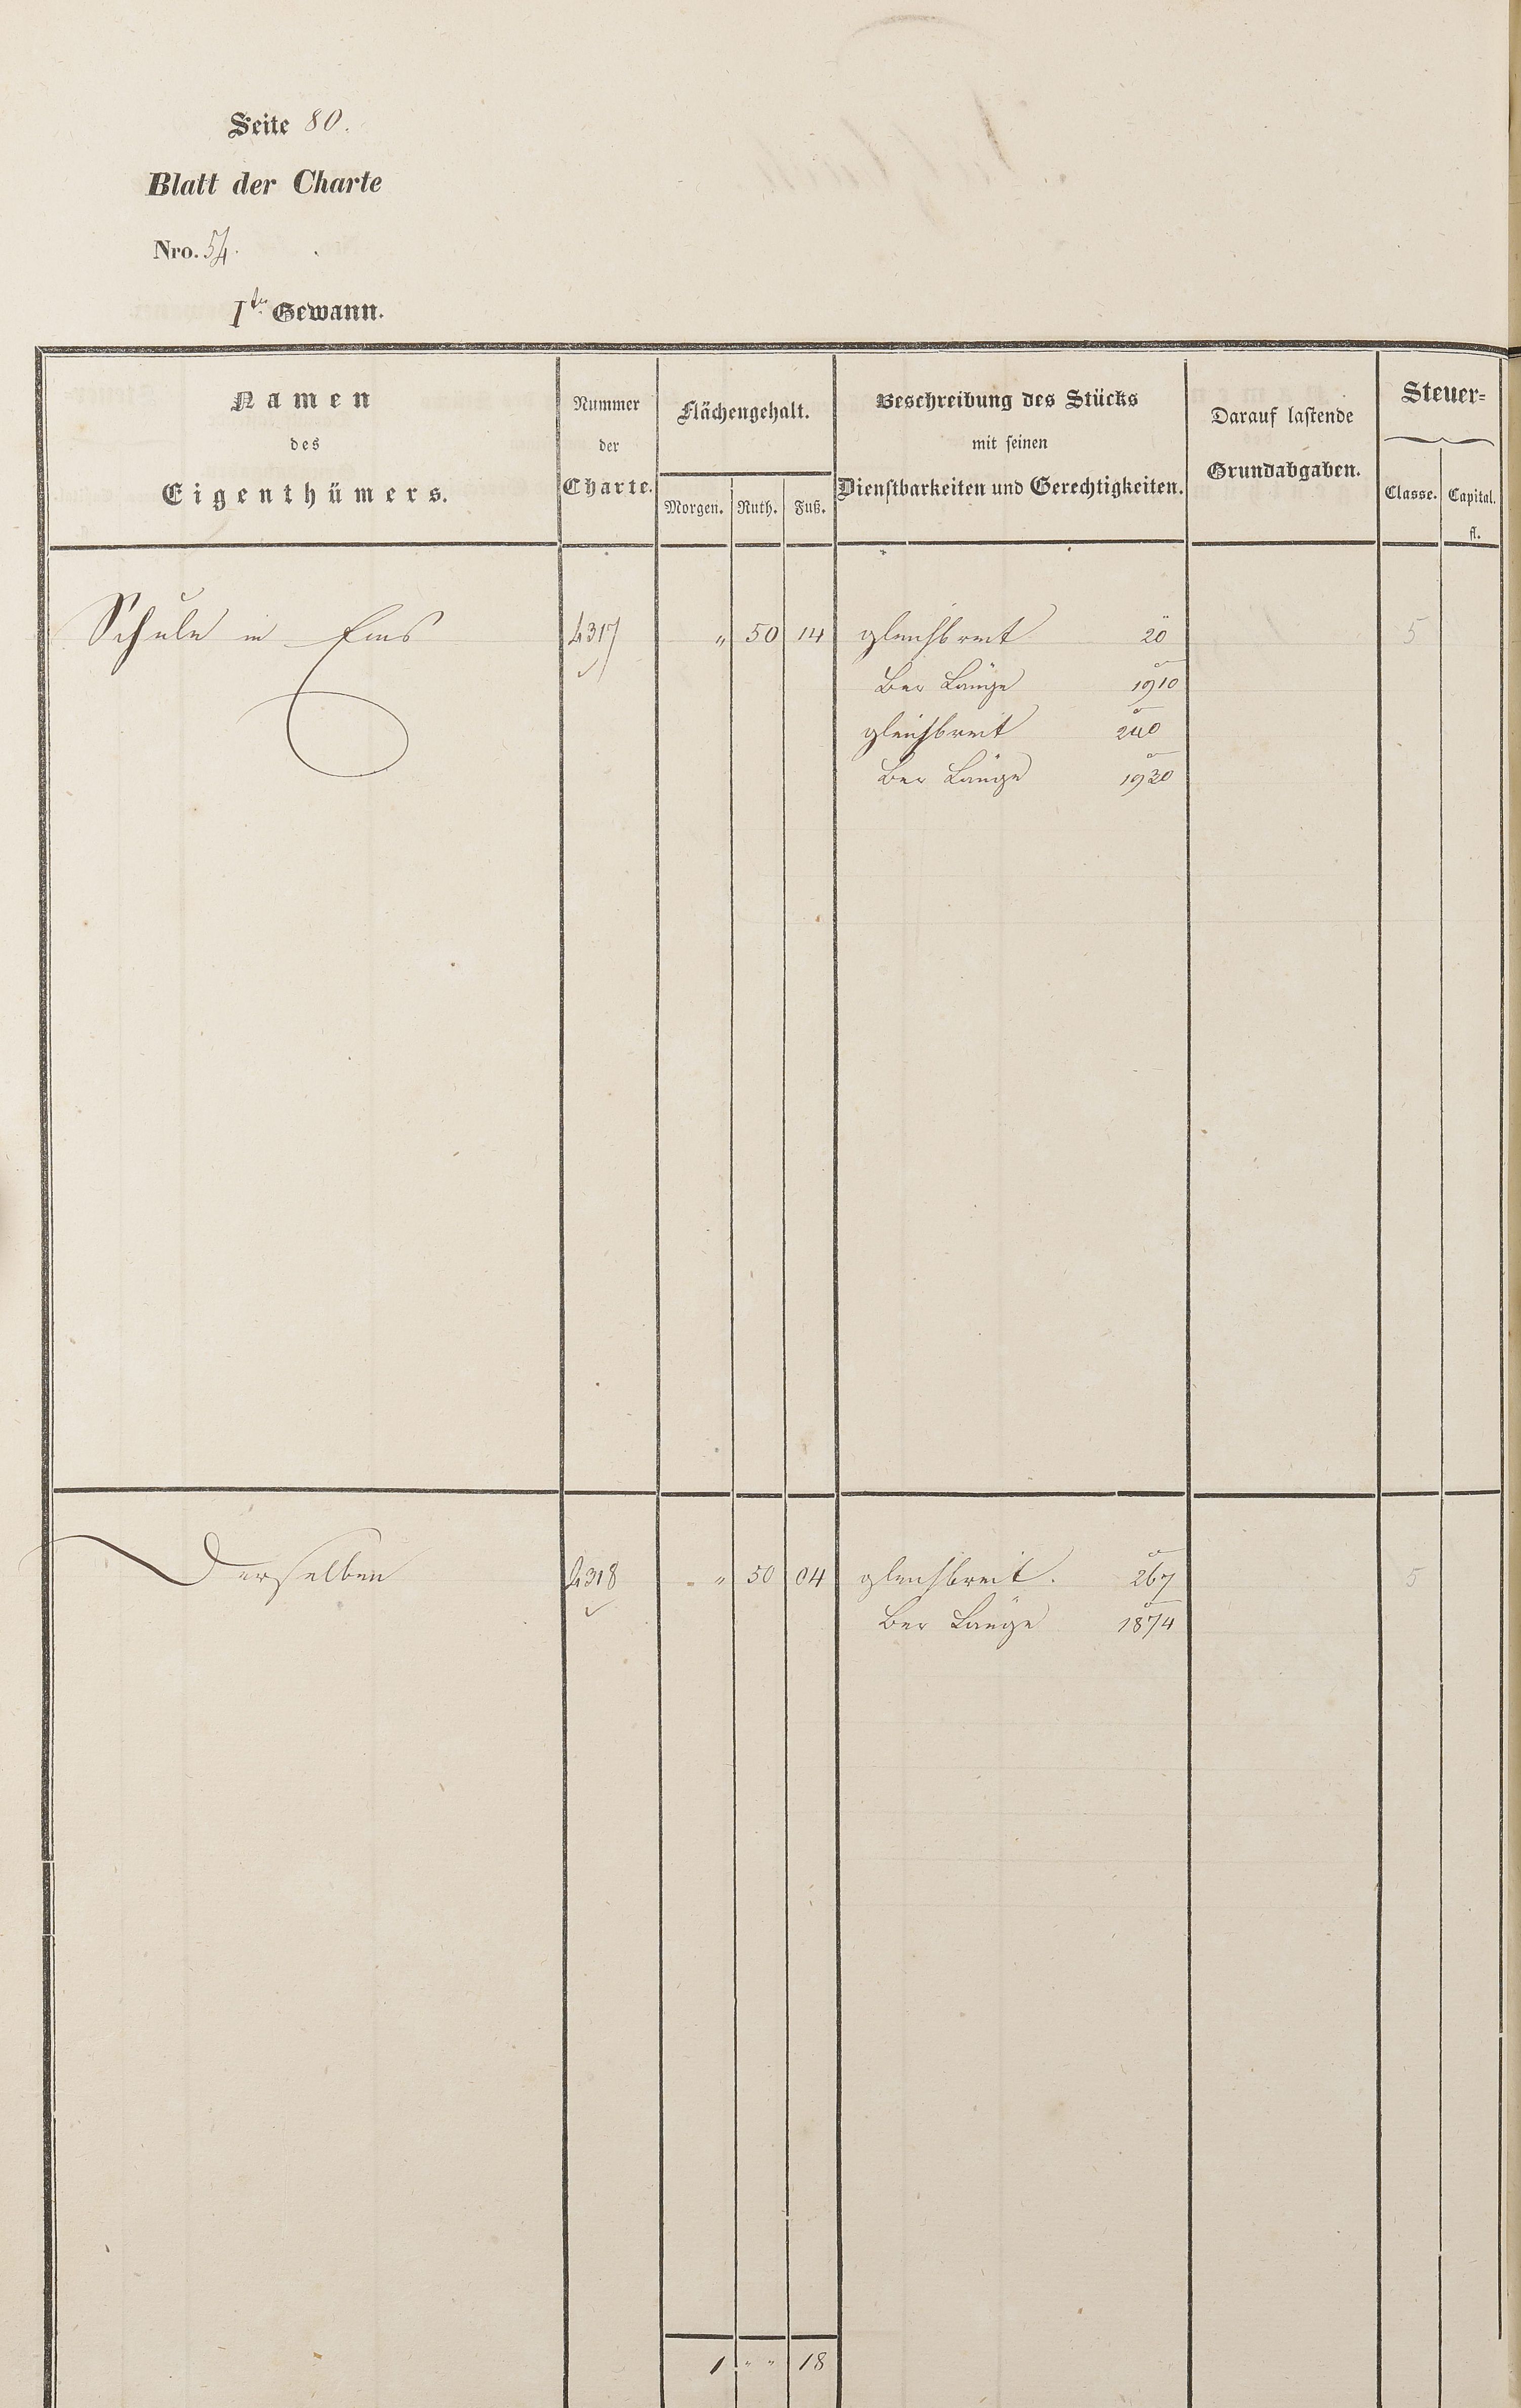 Seite 80.
Blatt der Charte
Nro. 54.
Ite Gewann.
Namen
des
Eigenthümers.
Nummer
der
Charte.
Flächengehalt.
Morgen. Ruth. Fuß.
Beschreibung des Stücks
mit seinen
Dienstbarkeiten und Gerechtigkeiten.
Darauf lastende
Grundabgaben.
Steuer=
Classe. Capital.
fl.
Schule in Ems 4317 " 50 14 gleichbreit 20 5
Ber Länge 1910
gleichbreit 240
Ber Länge 1930
Derselben 4318 " 50 04 gleichbreit. 267 5
Ber Länge 1874
1 " " 18